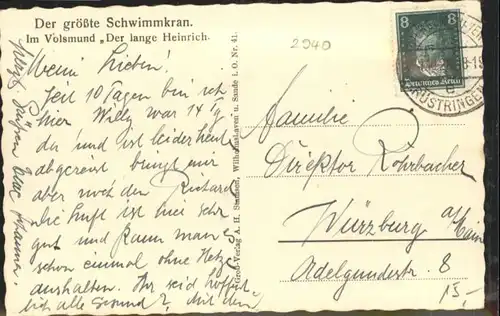 Der größte Schwimmkran.
Im Volsmund „Der lange Heinrich.
2940
8
Deutsches Reich
RÜSTRINGEN
Meine Lieben!
Seit 10 Tagen bin ich
hier Willy war 14 Tg
da und ist leider heute
abgereist bringt mir
aber noch den Richard
die Luft ist hier sehr
gut und kann man's
schon einmal ohne Hetze
aushalten. Ihr seid hoffent-
lich alle Gesund? Mit den
Grüßen Eure
Verlag A. H. Wilhelmshaven u. Sande i. O. Nr. 41.
Familie
Direktor Rohrbacher
Würzburg a/Main
Adelgundestr. 8
15,-